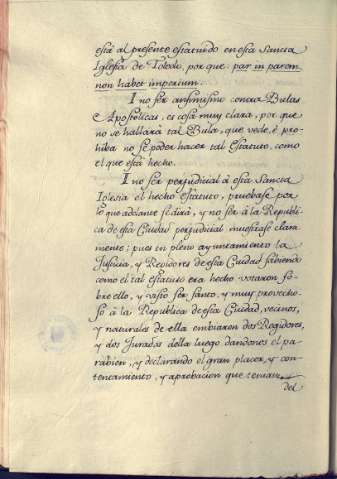 está al presente estatuido en esta Sancta
Iglesia de Toledo, porque: par in parem
non habet imperium.
I no ser ansimismo contra Bulas
Apostolicas, es cosa muy clara, por que
no se hallará tal Bula, que vede, è pro-
hiba no se poder hacer tal Estatuto, como
el que está hecho.
I no ser perjudicial á esta Sancta
Iglesia el hecho Estatuto, pruebase por
lo que adelante se dirá, y no ser á la Republi-
ca de esta Ciudad perjudicial muestrase clara
mente; pues en pleno ayuntamiento la
Justicia, y Regidores de esta Ciudad sabiendo
como el tal estatuto era hecho votaron so-
bre ello, y visto ser santo, y muy provecho-
so á la Republica de esta Ciudad, vecinos,
y naturales de ella embiaron dos Regidores,
y dos Jurados della luego dandonos el pa-
rabien, y declarando el gran placer, y con-
tentamiento, y aprobacion que tenian
del